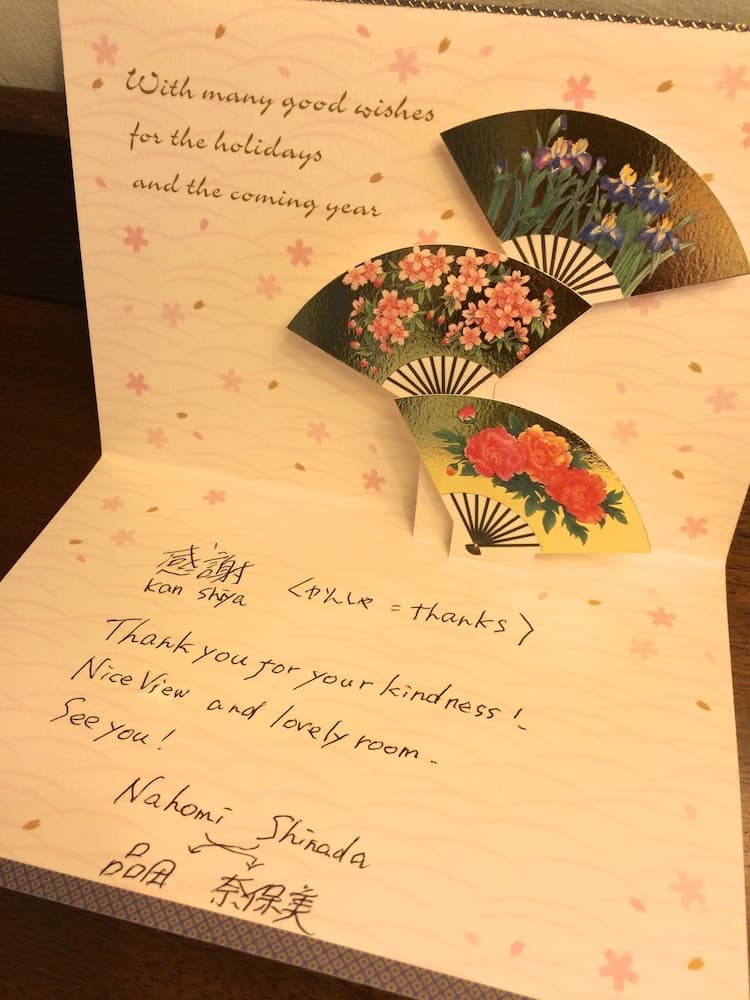 With many good wishes
for the holidays
and the coming year
感謝 〈かんしゃ = thanks〉
kan shiya
Thank you for your kindness!
Nice View and lovely room.
See you!
Nahomi Shinada
品田 奈保美